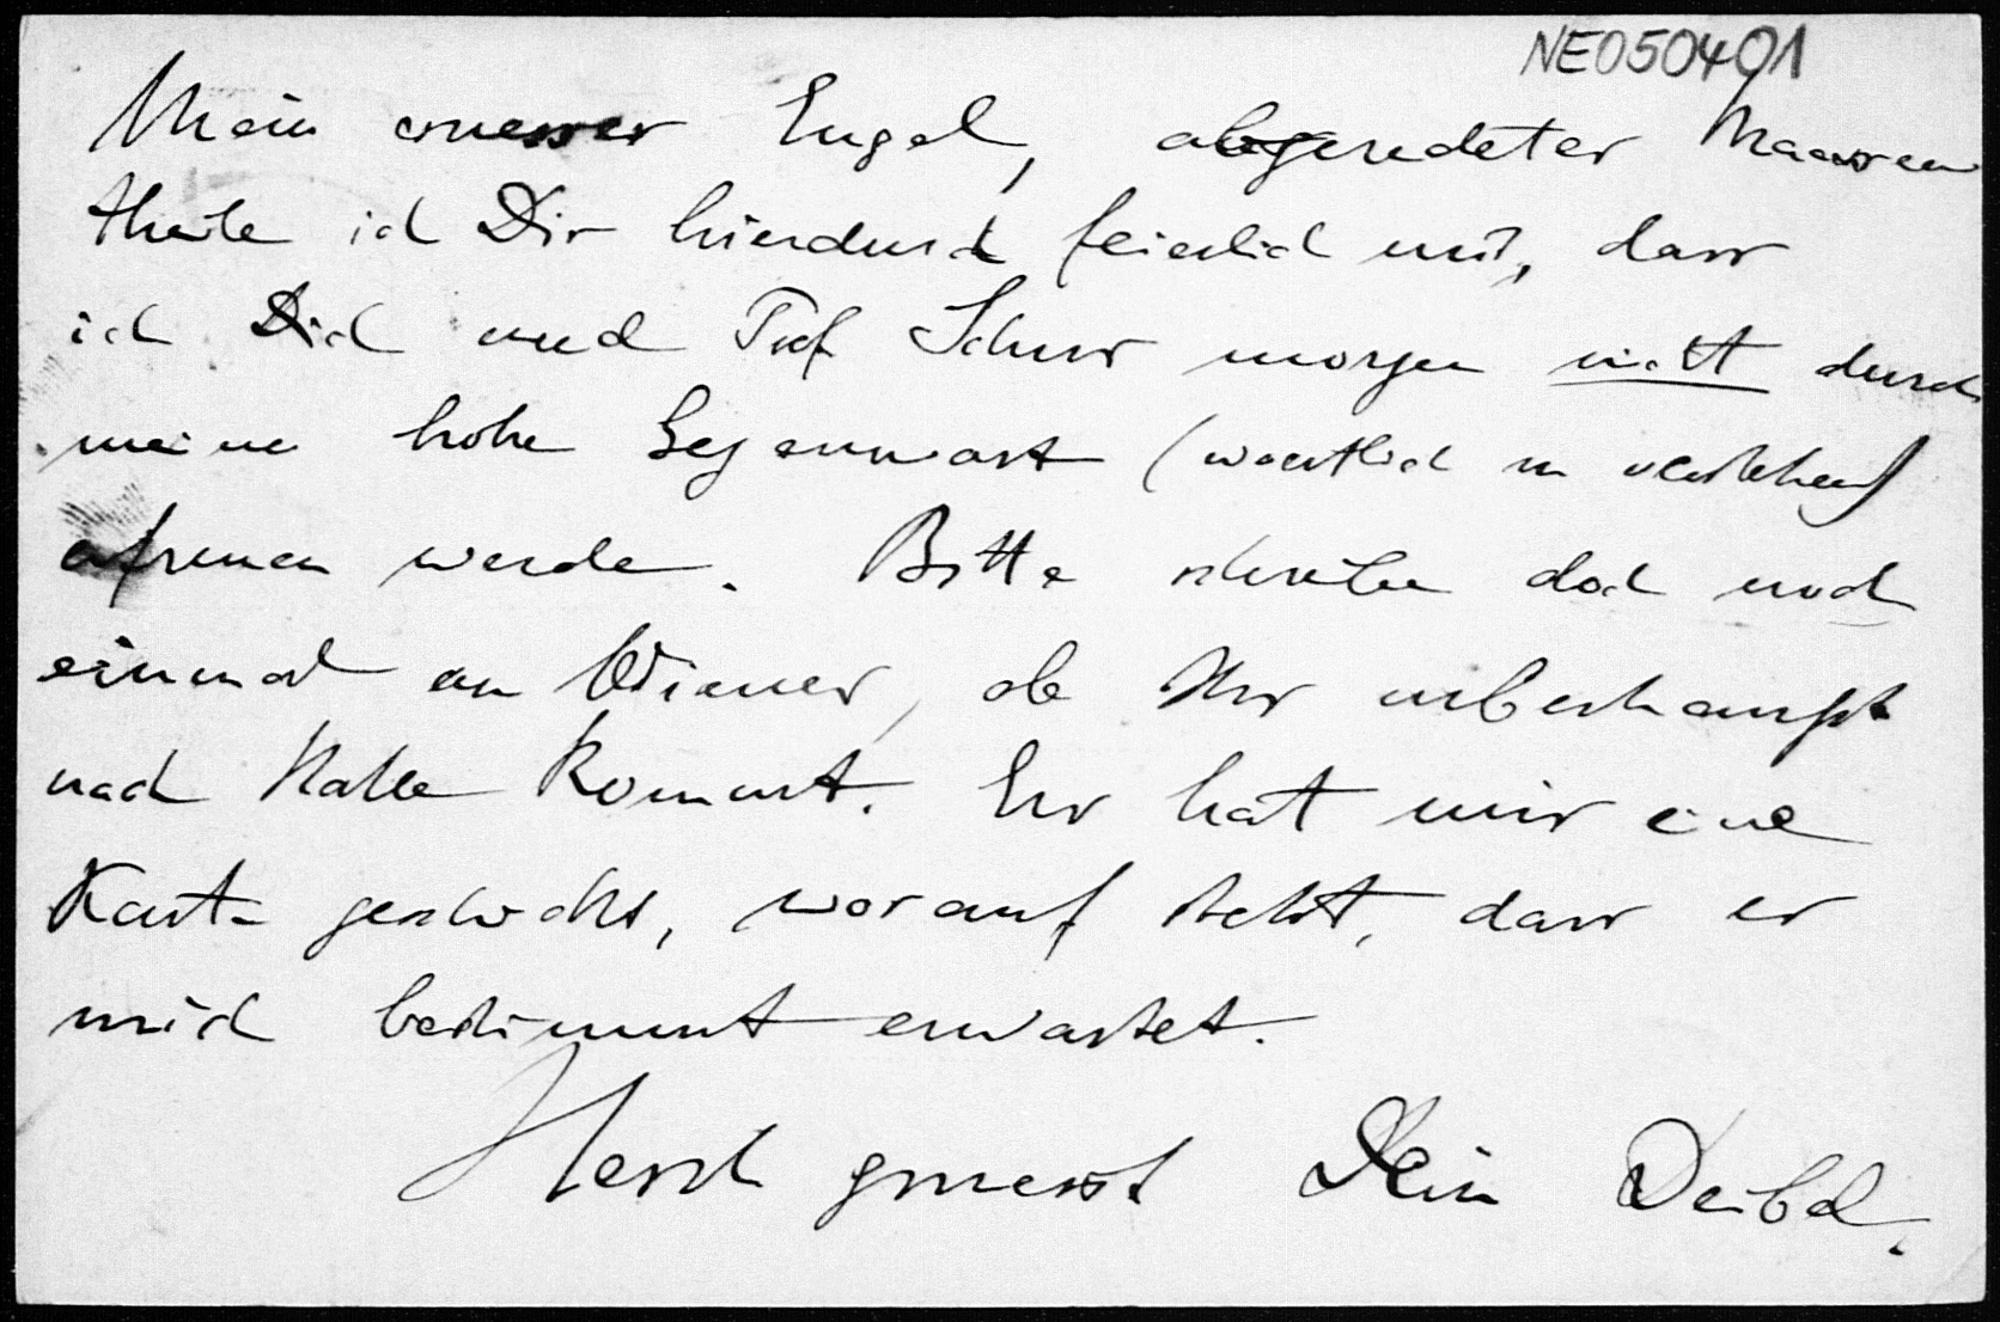 NE050491
Mein Engel, abgeredeter Maassen
theile ich Dir hierdurch feierlich mit, dass
ich Dich und Prof Schur morgen nicht durch
meine hohe Gegenwart (woertlich zu verstehen)
erfreuen werde. Bitte schreibe doch noch
einmal an Wiener, ob Ihr ueberhaupt
nach Halle kommt. Er hat mir eine
Karte geschickt, worauf steht, dass er
mich bestimmt erwartet.
Herzl gruesst Dein Deibel.